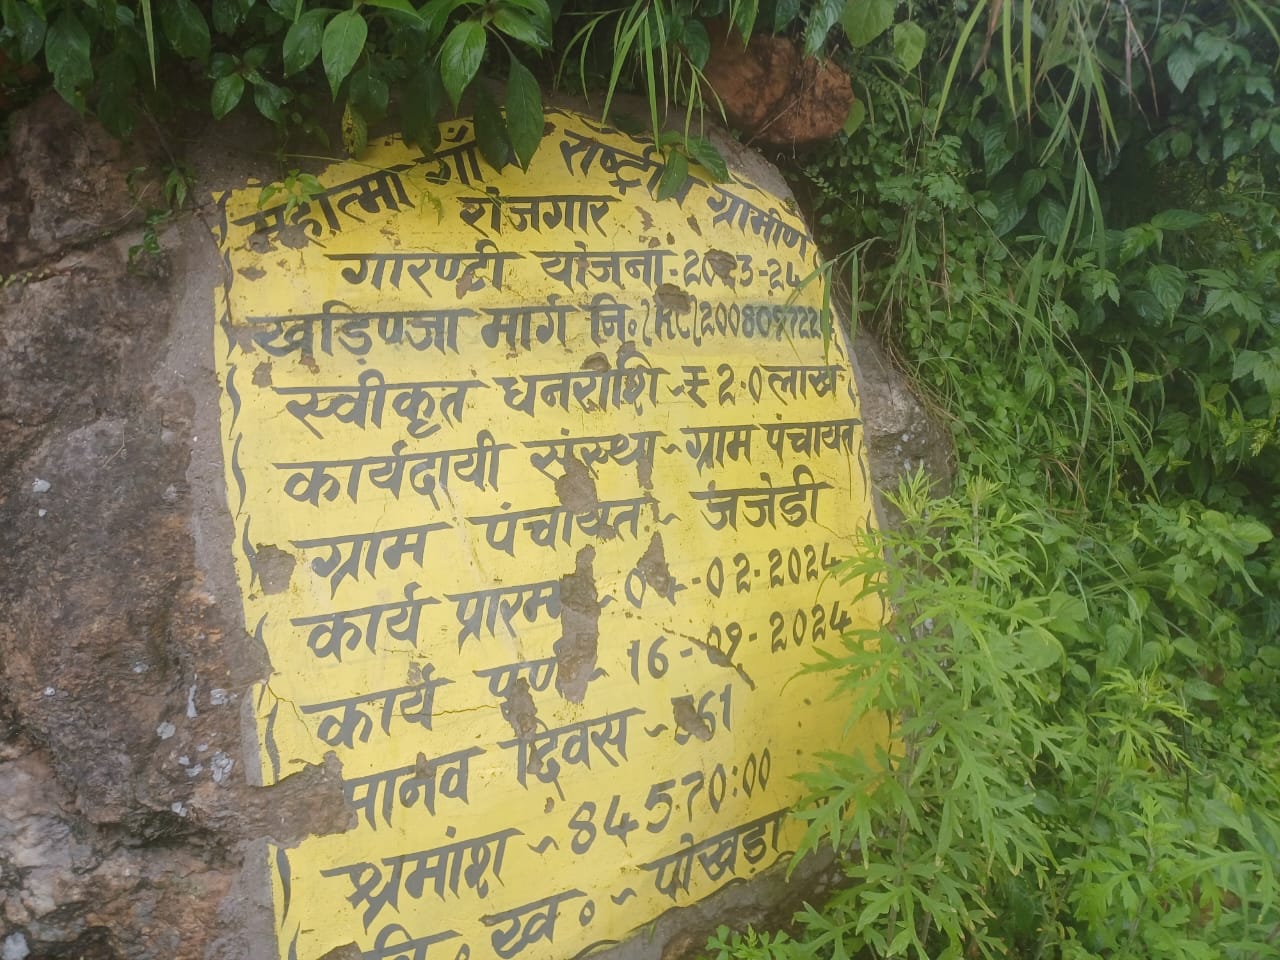 महात्मा गाँधी राष्ट्रीय ग्रामीण
रोजगार
गारण्टी योजना-2023-24
खड़िण्जा मार्ग नि०/RC/
स्वीकृत धनराशि ~ ₹ 2.0 लाख
कार्यदायी संस्था ~ ग्राम पंचायत
ग्राम पंचायत ~ जजेडी
कार्य प्रारम्भ ~ 04-02-2024
कार्य पूर्ण ~ 16-09-2024
मानव दिवस ~
श्रमांश ~ 84570:00
वि० ख० ~ पोखड़ा